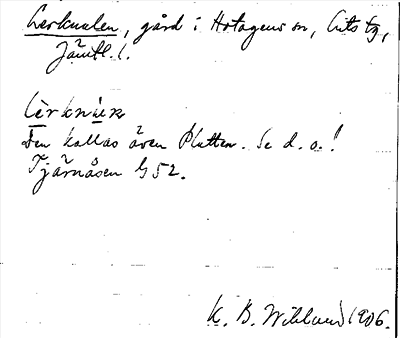 Lerknulen, gård i Hotagens sn, Lits tg,
Jämtl. l.
Lèrknùɴ
Den kallas även Platten. Se d. o.!
Tjärnåsen G 52.
K. B. Wiklund 1906.